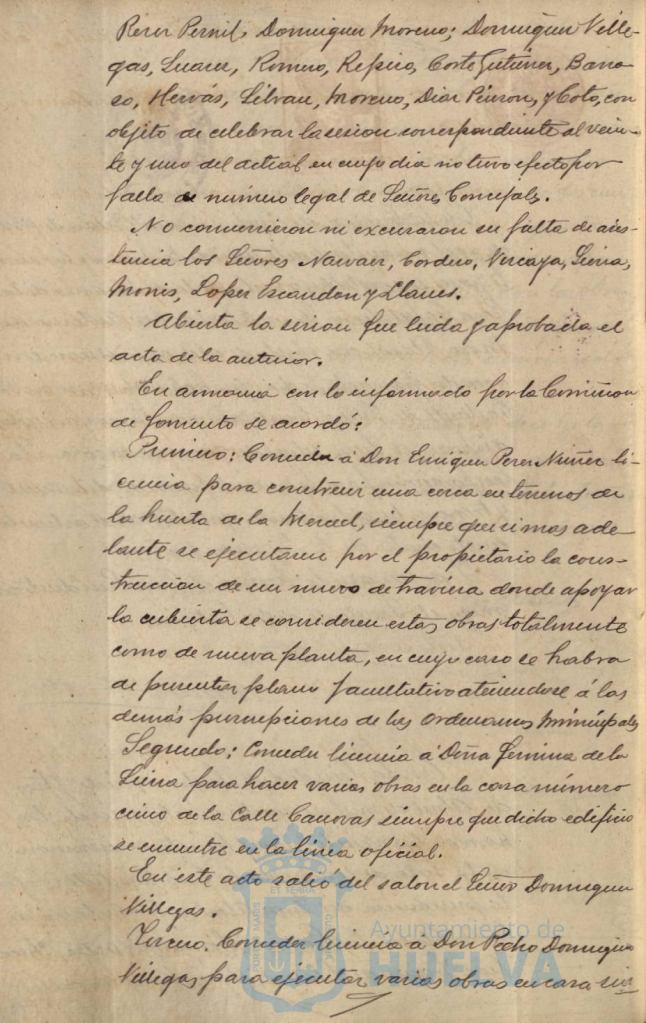 Perez Pernil, Dominguez Moreno; Dominguez Ville-
gas, Suarez, Romero, Repiso, Corte Gutierrez, Barro-
so, Hervás, Silvan, Moreno, Diaz Pinzon, y Coto, con
objeto de celebrar la sesion correspondiente al vein-
te y uno del actual en cuyo dia no tuvo efecto por
falta de número legal de Señores Concejales.
No concurrieron ni excusaron su falta de asis-
tencia los Señores Narvaez, Cordero, Vizcaya, Sierra,
Monis, Lopez Escandon y Llanes.
Abierta la sesion fue leida y aprobada el
acta de la anterior.
En armonia con lo informado por la Comision
de fomento se acordó:
Primero: Conceder á Don Enrique Perez Nuñez li-
cencia para construir una cerca en terrenos de
la huerta de la Merced, siempre que si mas ade-
lante se ejecutasen por el propietario la cons-
truccion de un muro de travieza donde apoyar
la cubierta se consideren estas obras totalmente
como de nueva planta, en cuyo caso se habra
de presentar plano facultativo ateniendose á las
demás prescripciones de las Ordenanzas Municipales
Segundo: Conceder licencia á Doña Fermina de la
Sierra para hacer varias obras en la casa número
cinco de la Calle Canovas siempre que dicho edificio
se encuentre en la linea oficial.
En este acto salió del salon el Señor Dominguez
Villegas.
Tercero. Conceder licencia á Don Pedro Dominguez
Villegas, para ejecutar varias obras en casa sin
Ayuntamiento de
HUELVA